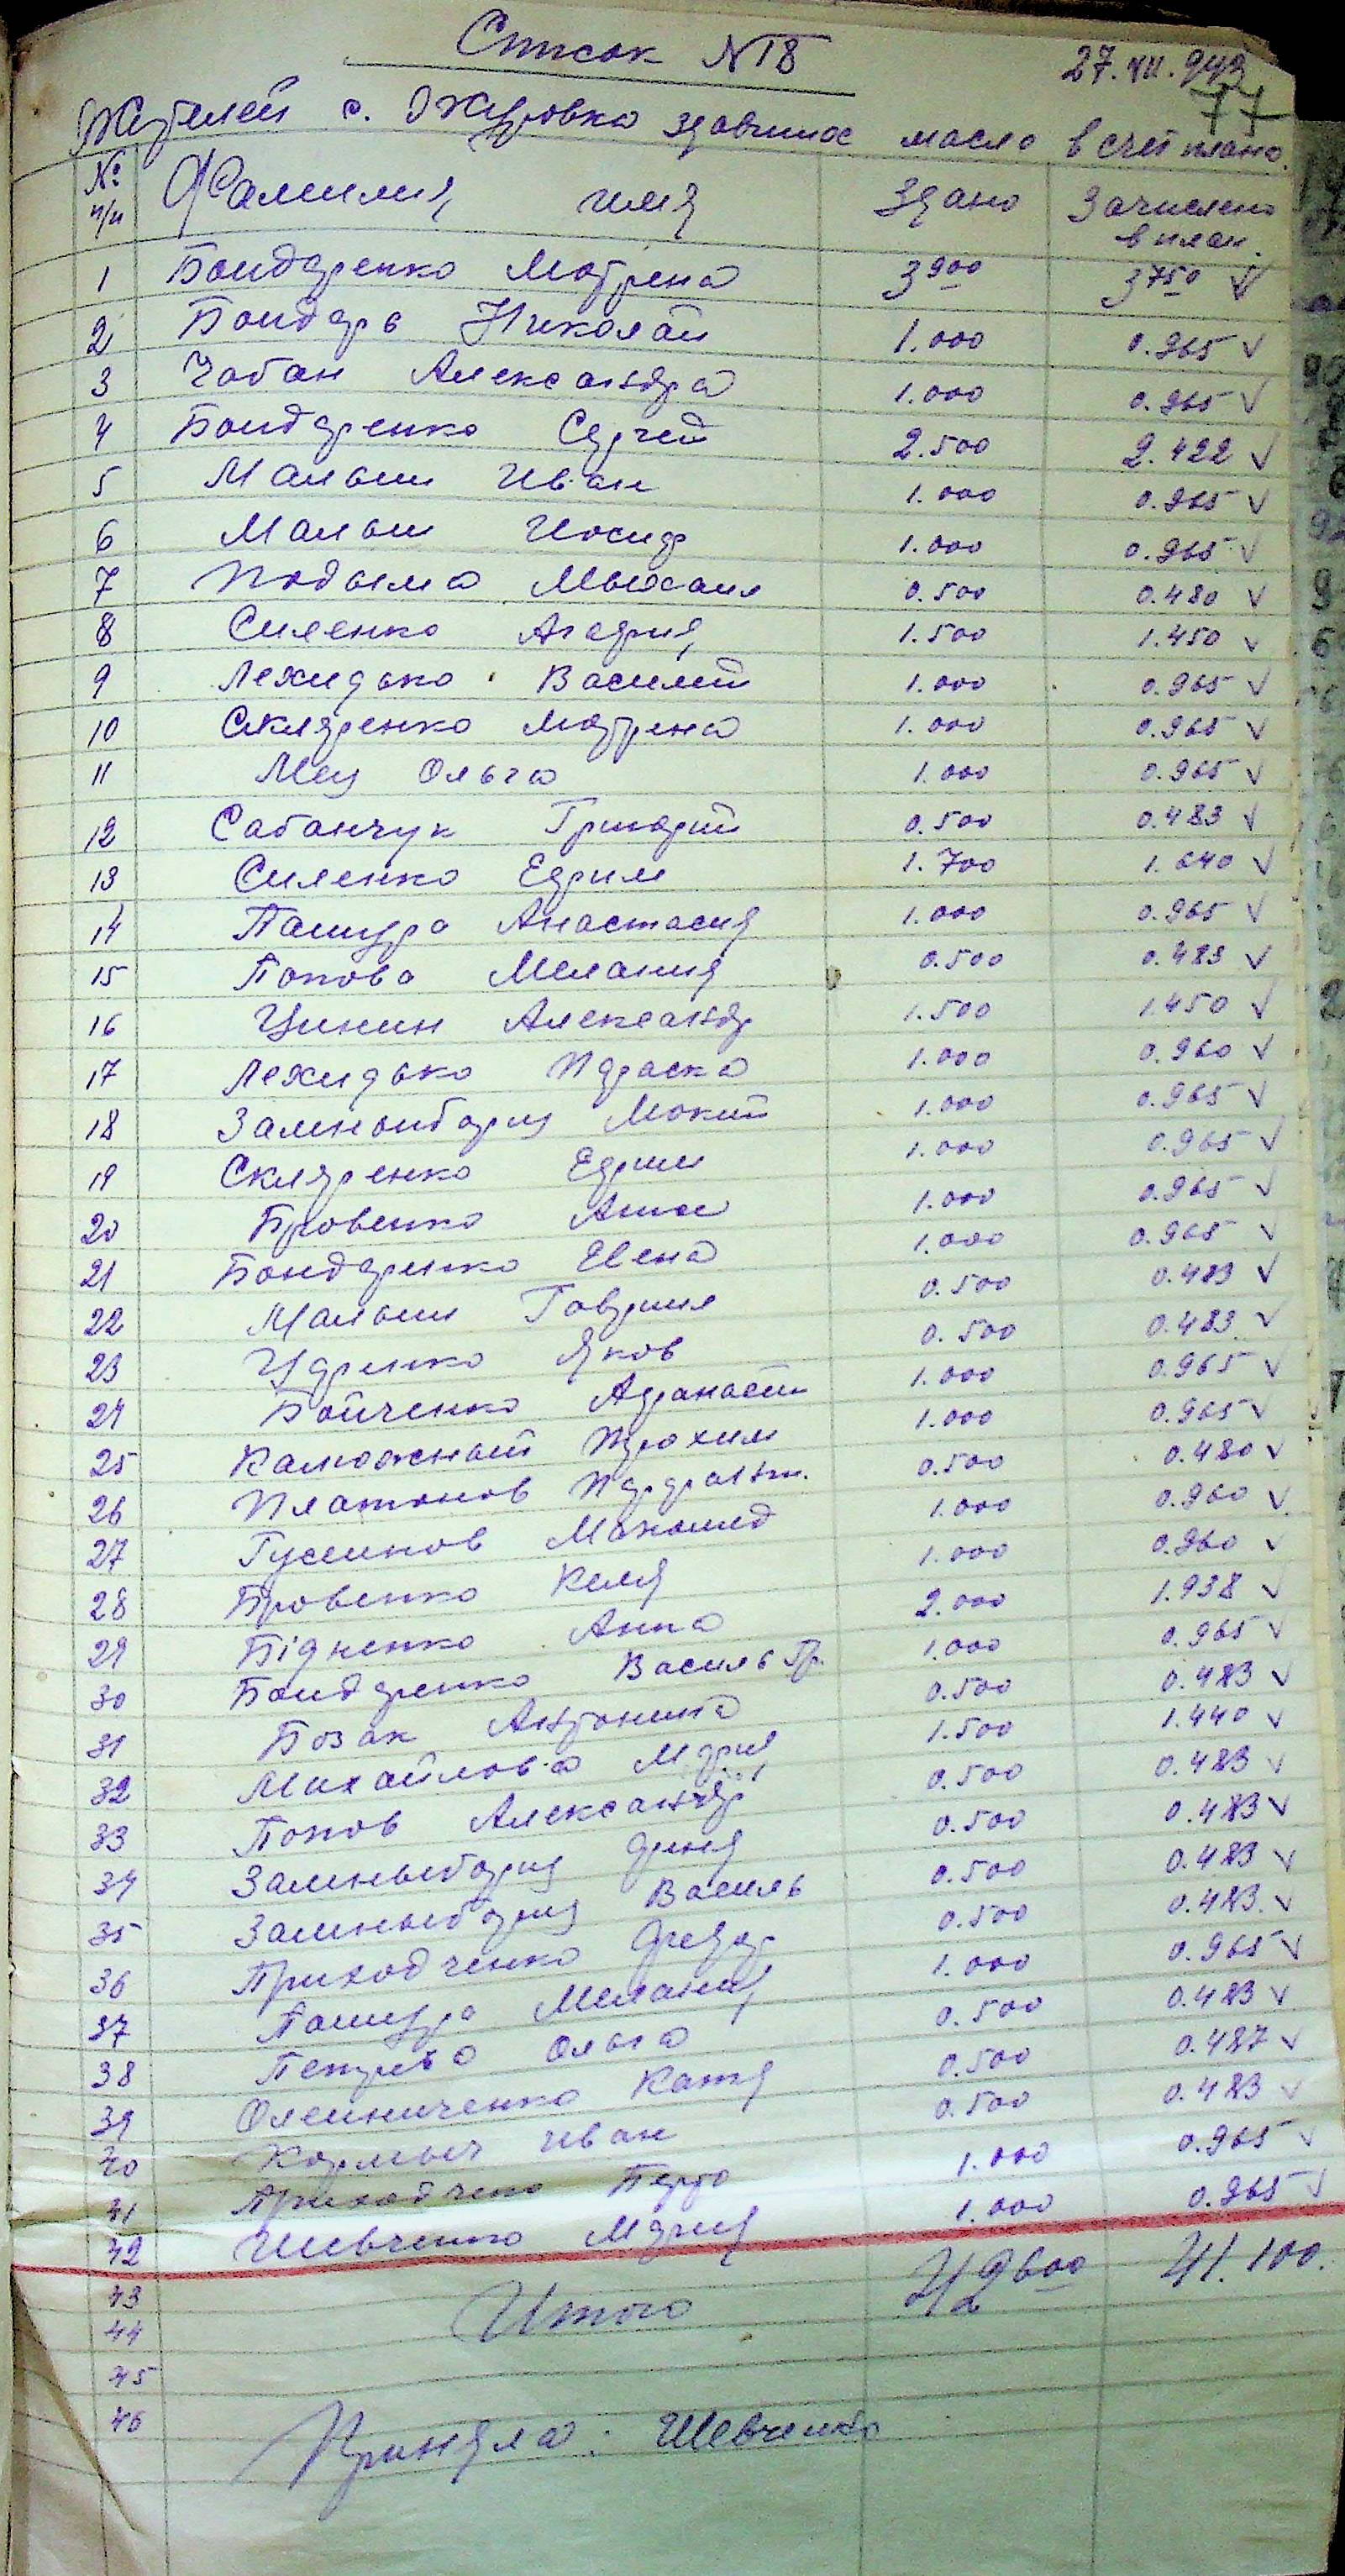 Список № 18
27.VII.943
77
Жителей с. Жеровка здавших масло в счет плана.
№ п/п Фамилия, имя Здано Зачислено в план.
1 Бондаренко Мотрена 3 900 3 750 √
2 Бондарь Николай 1.000 0.965 √
3 Чабан Александра 1.000 0.965 √
4 Бондаренко Сергей 2.500 2.422 √
5 Малыш Иван 1.000 0.965 √
6 Малыш Иосиф 1.000 0.965 √
7 Подыма Мыхаил 0.500 0.480 √
8 Силенко Агафия 1.500 1.450 √
9 Лехидько Василий 1.000 0.965 √
10 Скляренко Мотрена 1.000 0.965 √
11 Мец Ольга 1.000 0.965 √
12 Сабанчук Григорий 0.500 0.483 √
13 Силенко Ефрим 1.700 1.640 √
14 Пашура Анастасия 1.000 0.965 √
15 Попова Мелания 0.500 0.483 √
16 Цинин Александр 1.500 1.450 √
17 Лехидько Параска 1.000 0.960 √
18 Замныборщ Мокий 1.000 0.965 √
19 Скляренко Ефрим 1.000 0.965 √
20 Бровенко Анна 1.000 0.965 √
21 Бондаренко Елена 1.000 0.965 √
22 Малыш Гаврил 0.500 0.483 √
23 Царенко Яков 0.500 0.483 √
24 Бойченко Афанасий 1.000 0.965 √
25 Калюжный Трохим 1.000 0.965 √
26 Платонов 0.500 0.480 √
27 Гусейнов Макамед 1.000 0.960 √
28 Бровенко Келя 1.000 0.960 √
29 Бідненко Анна 2.000 1.938 √
30 Бондаренко Василь Гр. 1.000 0.965 √
31 Бозак Антонина 0.500 0.483 √
32 Михайлова Мария 1.500 1.440 √
33 Попов Александр 0.500 0.483 √
34 Замныборщ 0.500 0.483 √
35 Замныборщ Василь 0.500 0.483 √
36 Приходченко Федор 0.500 0.483 √
37 Пашура Мелания 1.000 0.965 √
38 Ольга 0.500 0.483 √
39 Олейниченко Катя 0.500 0.487 √
40 Кормыч Иван 0.500 0.483 √
41 Приходченко Петро 1.000 0.965 √
42 Шевченко Мария 1.000 0.965 √
43 Итого 42 600 41.100.
44
45
46
Приняла: Шевченко